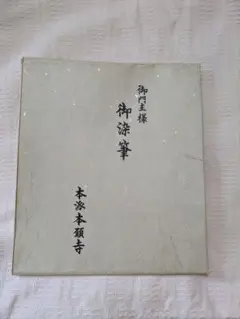 御門主様
御染筆
本派本願寺